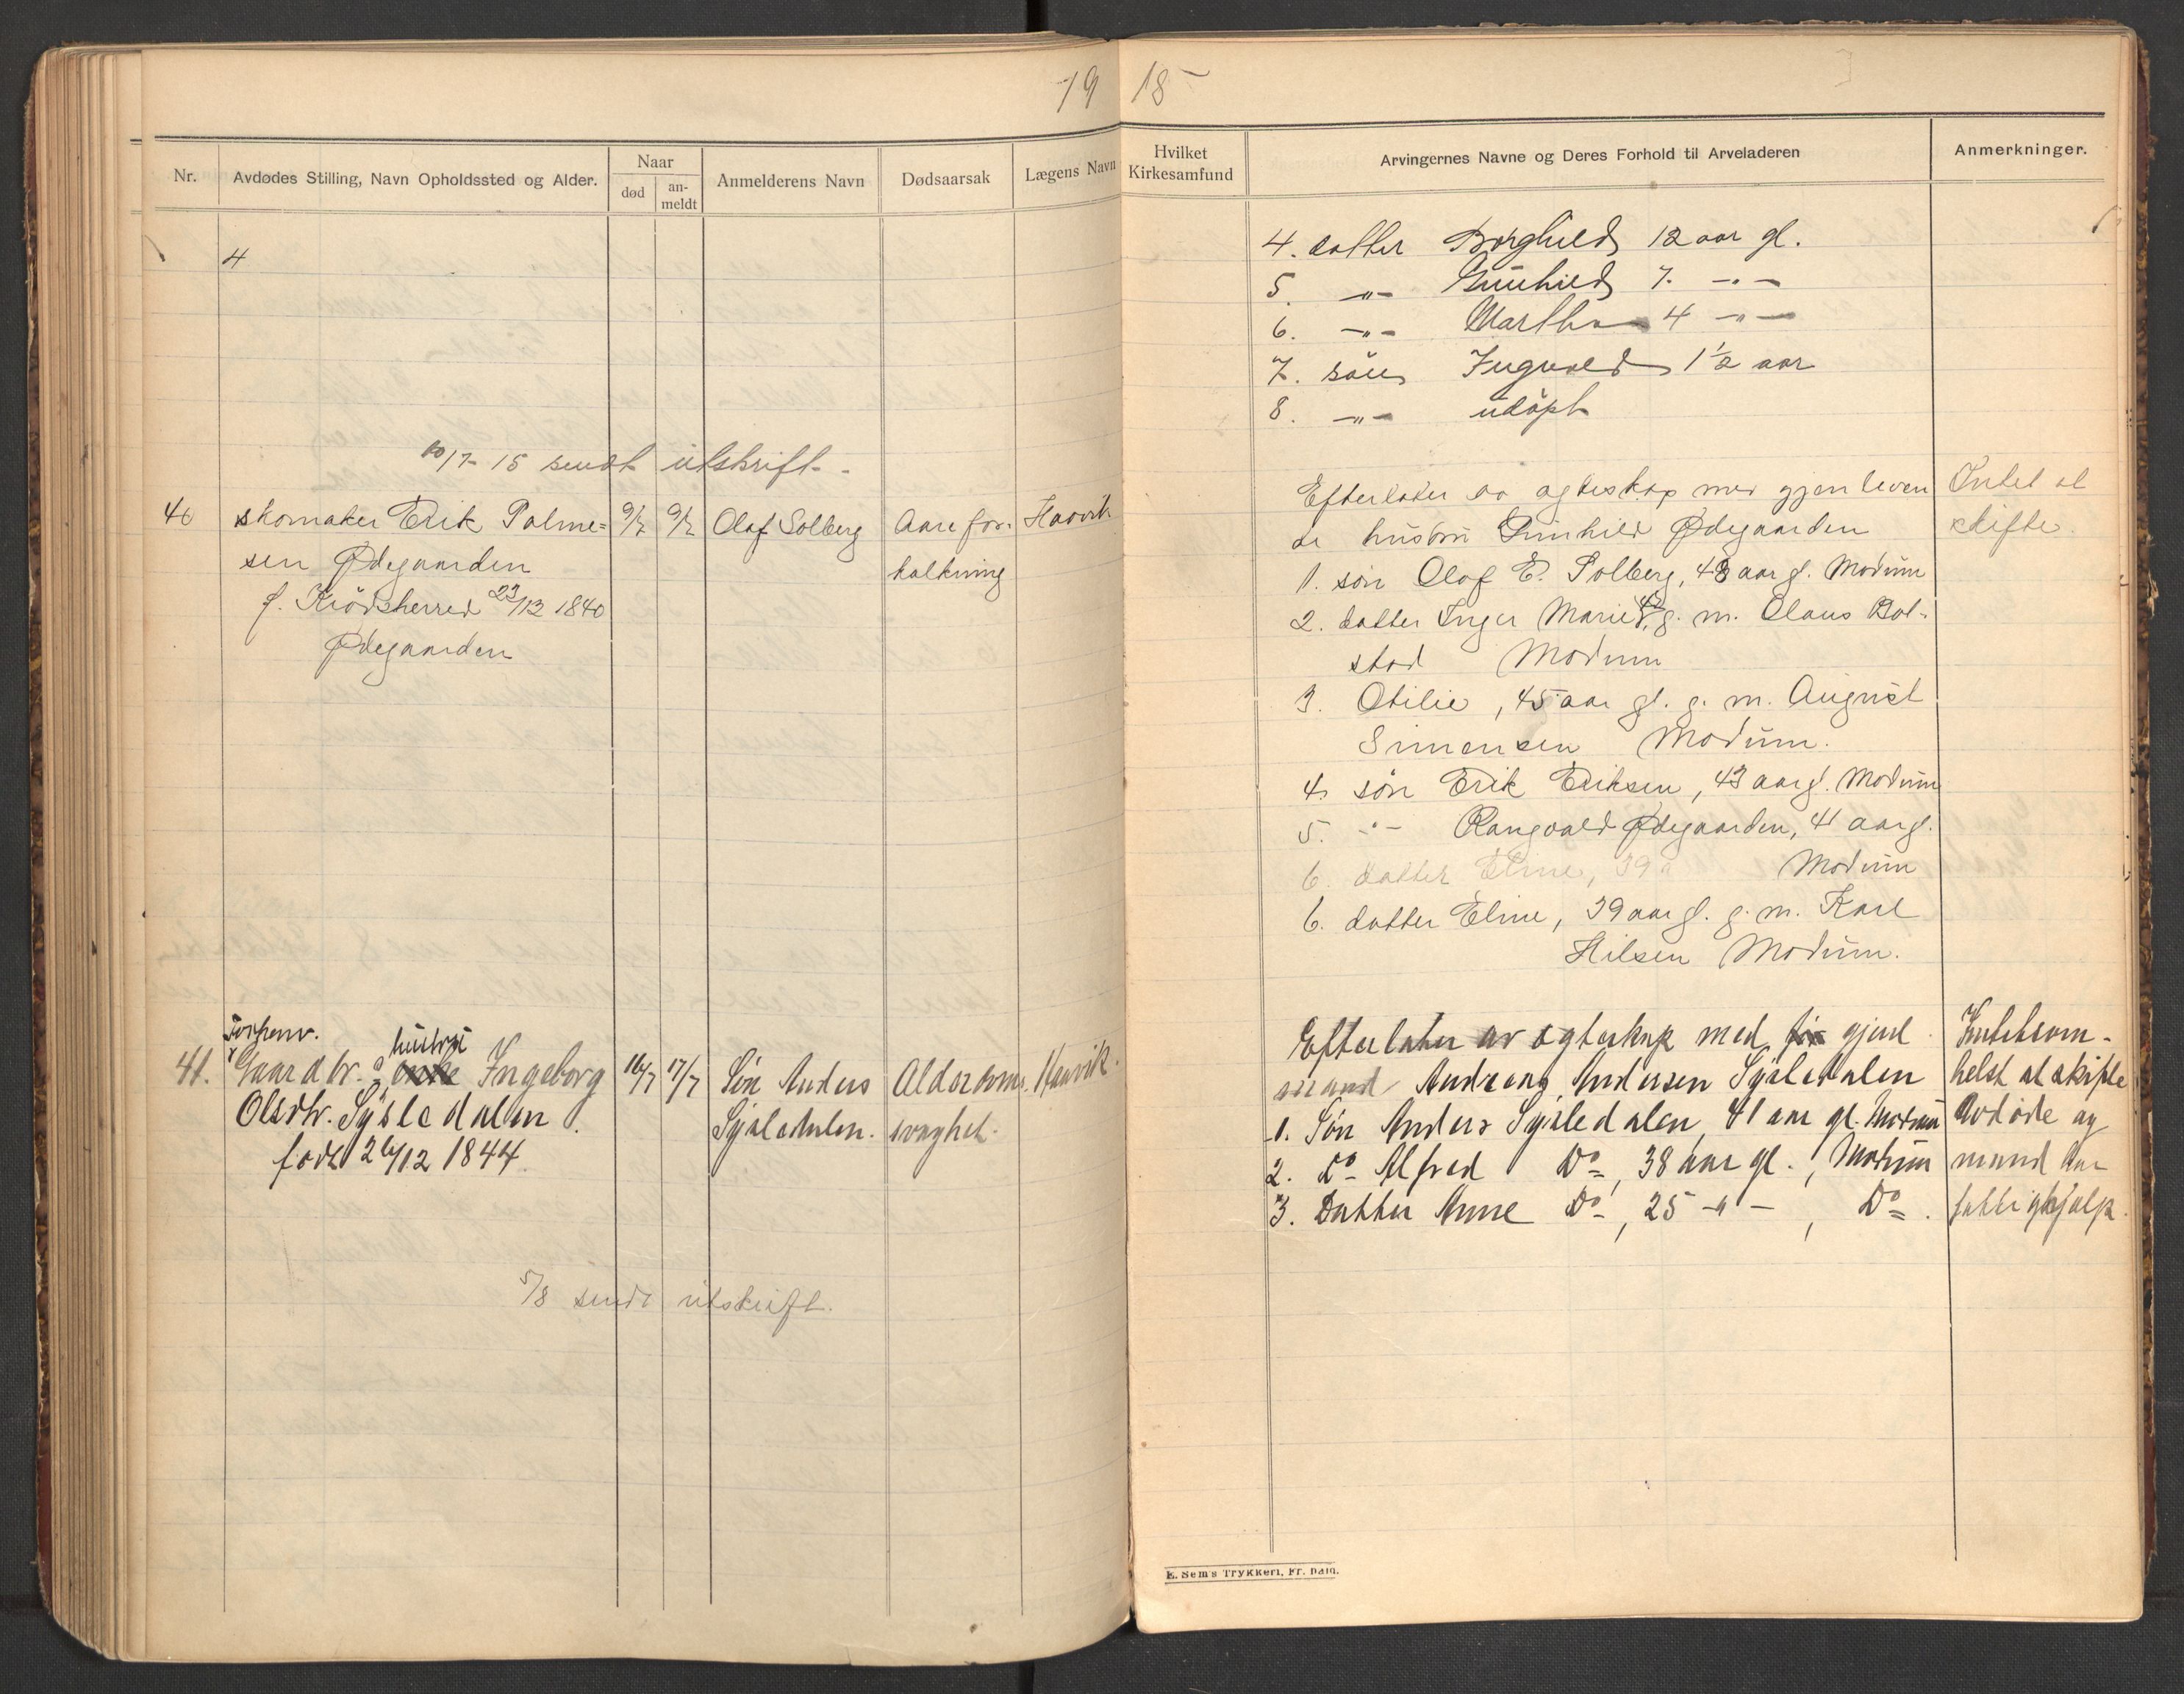 19 18
Nr.
Avdødes Stilling, Navn Opholdssted og Alder.
Naar
død
an-
meldt
Anmelderens Navn
Dødsaarsak
Lægens Navn
Hvilket
Kirkesamfund
Arvingernes Navne og Deres Forhold til Arveladeren
Anmerkninger.
4
4. datter Borghild 12 aar gl.
5. -"- Gunhild 7. -"-
6. -"- Martha 4 -"-
7. søn Ingvald 1 1/2 aar
8. -"- udøpt
10/7 - 18 sendt utskrift.
40 skomaker Erik Palme=
sen Ødegaarden
f. Krödsherred 23/12 1840
Ødegaarden
9/7 9/7 Olaf Solberg
Aarefor-
kalkning
Haavik
Efterlater av egteskap med gjenleven
de hustru Gunhild Ødegaarden
1. søn Olaf E. Solberg, 48 aar gl. Modum
2. datter Inger Marie, 47, g. m. Claus Bol-
stad Modum
3. Otilie, 45 aar gl. g. m. August
Simensen Modum.
4. søn Erik Eriksen, 43 aar gl. Modum
5. -"- Rangvald Ødegaarden, 41 aar gl.
6. datter Eline, 39 a Modum
6. datter Eline, 39 aar gl. g. m. Karl
Hilsen Modum.
Intet at
skifte.
41. Gaardbr. hustru Ingeborg
Olsdtr. Sysledalen.
født 26/12 1844.
16/7 17/7 Søn Anders
Sysledalen.
Alderdoms
svaghet.
Haavik.
Efterlater av egteskap med gjenl
mand Andreas Andersen Sysledalen
1. Søn Anders Sysledalen, 41 aar gl. Modum
2. Do Alfred Do, 38 aar gl., Modum
3. Datter Anne Do, 25 -"-, Do.
Intetsom-
helst at skifte
Avdøde og
mand har
fattighjælp.
5/8 sendt utskrift.
E. Sem's Trykkeri, Fr.hald.